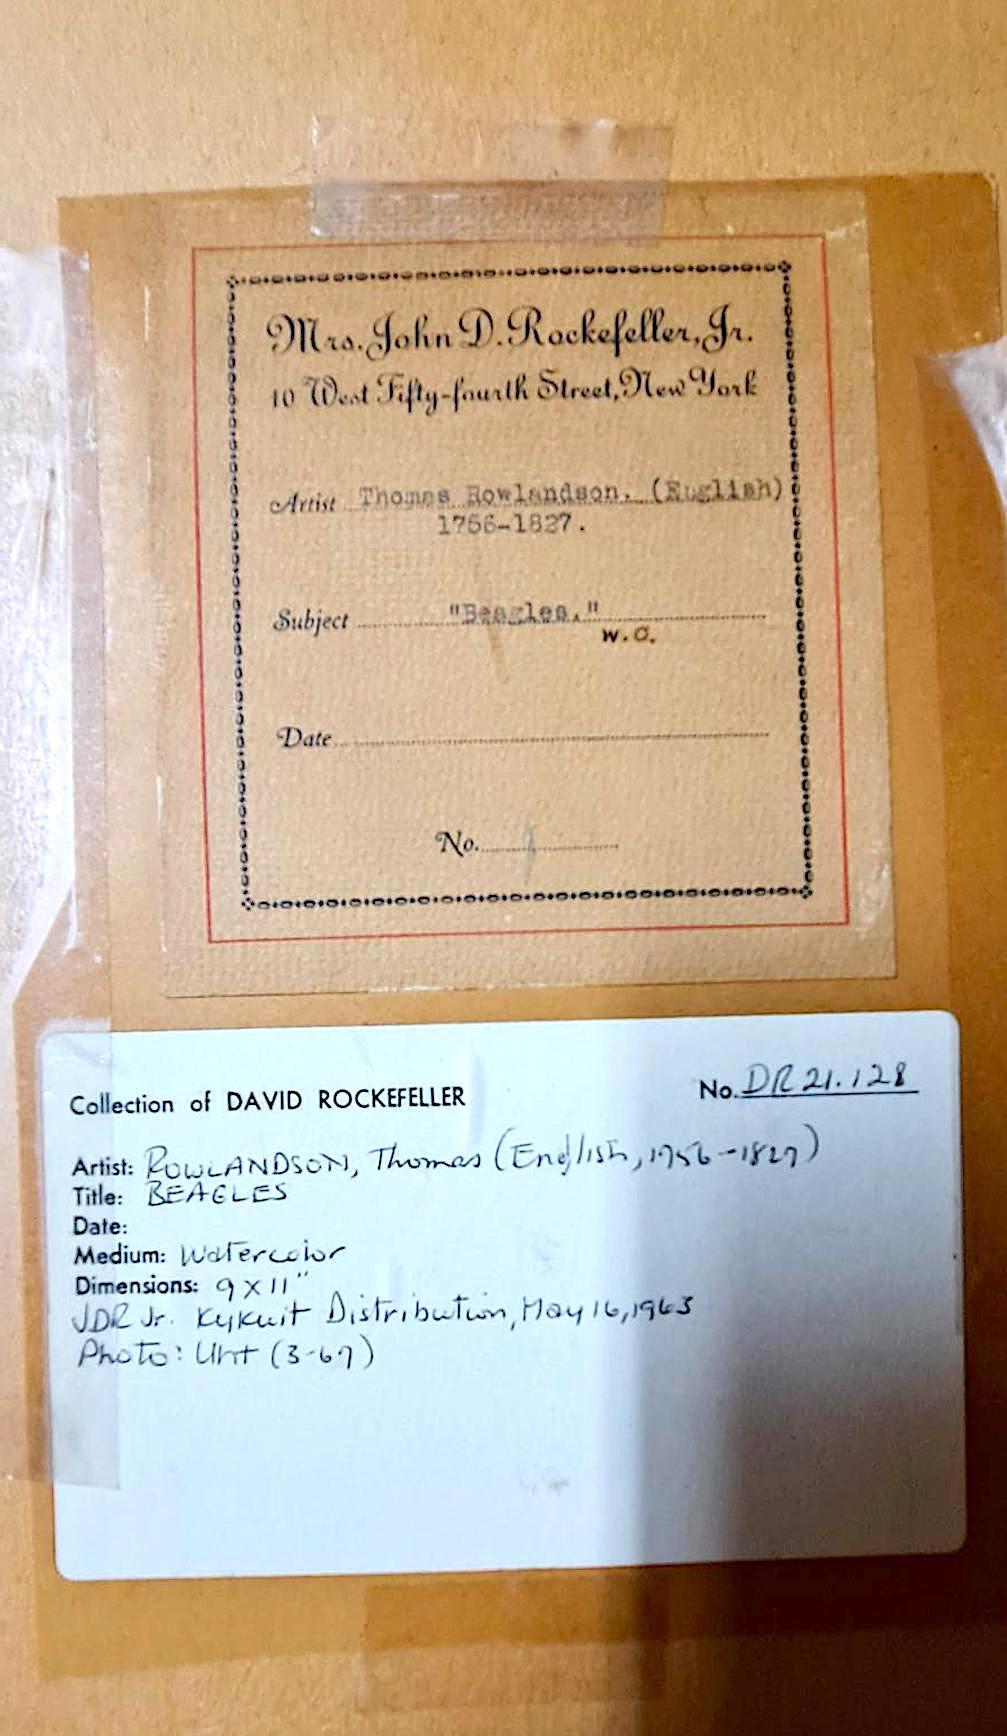 Mrs. John D. Rockefeller, Jr.
10 West Fifty-fourth Street, New York
Artist Thomas Rowlandson. (English)
1756-1827.
Subject "Beagles."
w.c.
Date
No.
Collection of DAVID ROCKEFELLER No. DR 21.128
Artist: ROWLANDSON, Thomas (English, 1756-1827)
Title: BEAGLES
Date:
Medium: Watercolor
Dimensions: 9 x 11"
JDR Jr. Kykuit Distribution, May 16, 1963
Photo: Uht (3-67)